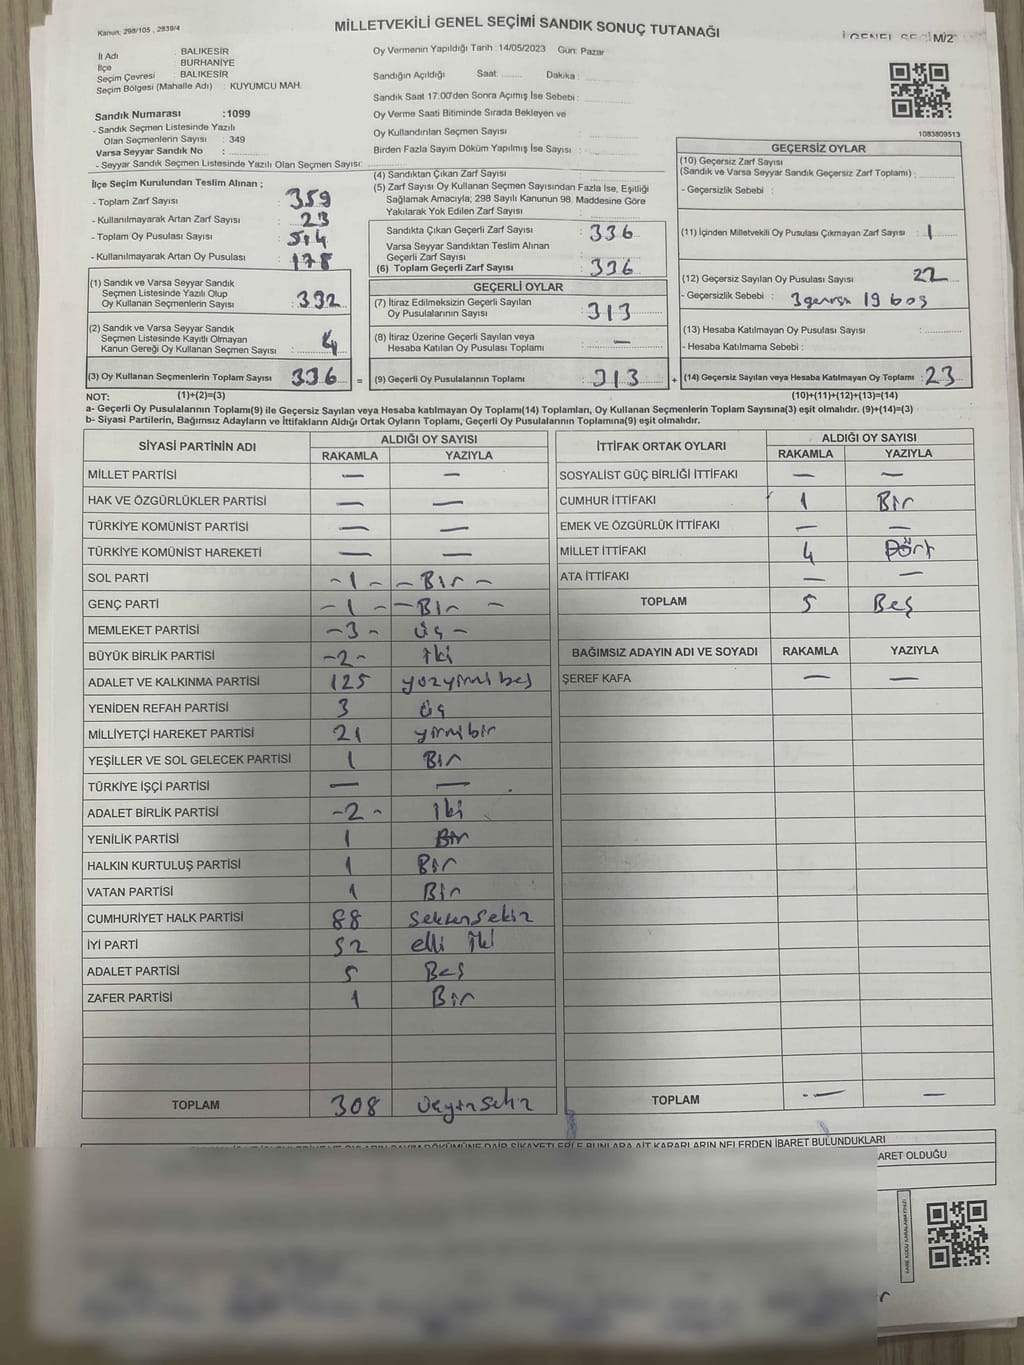 Kanun: 298/105 , 2839/4
MİLLETVEKİLİ GENEL SEÇİMİ SANDIK SONUÇ TUTANAĞI
İl Adı : BALIKESİR
İlçe : BURHANİYE
Seçim Çevresi : BALIKESİR
Seçim Bölgesi (Mahalle Adı) : KUYUMCU MAH.
Sandık Numarası : 1099
- Sandık Seçmen Listesinde Yazılı
Olan Seçmenlerin Sayısı : 349
Varsa Seyyar Sandık No :
- Seyyar Sandık Seçmen Listesinde Yazılı Olan Seçmen Sayısı:
Oy Vermenin Yapıldığı Tarih : 14/05/2023 Gün: Pazar
Sandığın Açıldığı Saat: Dakika:
Sandık Saat 17:00'den Sonra Açımış İse Sebebi :
Oy Verme Saati Bitiminde Sırada Bekleyen ve
Oy Kullandırılan Seçmen Sayısı
Birden Fazla Sayım Döküm Yapılmış İse Sayısı :
1083809513
İlçe Seçim Kurulundan Teslim Alınan ;
- Toplam Zarf Sayısı : 359
- Kullanılmayarak Artan Zarf Sayısı : 23
- Toplam Oy Pusulası Sayısı : 514
- Kullanılmayarak Artan Oy Pusulası : 178
(1) Sandık ve Varsa Seyyar Sandık
Seçmen Listesinde Yazılı Olup
Oy Kullanan Seçmenlerin Sayısı : 332
(2) Sandık ve Varsa Seyyar Sandık
Seçmen Listesinde Kayıtlı Olmayan
Kanun Gereği Oy Kullanan Seçmen Sayısı : 4
(3) Oy Kullanan Seçmenlerin Toplam Sayısı 336 =
(4) Sandıktan Çıkan Zarf Sayısı :
(5) Zarf Sayısı Oy Kullanan Seçmen Sayısından Fazla İse, Eşitliği
Sağlamak Amacıyla; 298 Sayılı Kanunun 98. Maddesine Göre
Yakılarak Yok Edilen Zarf Sayısı
Sandıkta Çıkan Geçerli Zarf Sayısı : 336
Varsa Seyyar Sandıktan Teslim Alınan
Geçerli Zarf Sayısı
(6) Toplam Geçerli Zarf Sayısı : 336
GEÇERLİ OYLAR
(7) İtiraz Edilmeksizin Geçerli Sayılan
Oy Pusulalarının Sayısı : 313
(8) İtiraz Üzerine Geçerli Sayılan veya
Hesaba Katılan Oy Pusulası Toplamı : —
(9) Geçerli Oy Pusulalarının Toplamı : 313 +
GEÇERSİZ OYLAR
(10) Geçersiz Zarf Sayısı
(Sandık ve Varsa Seyyar Sandık Geçersiz Zarf Toplamı) :
- Geçersizlik Sebebi :
(11) İçinden Milletvekili Oy Pusulası Çıkmayan Zarf Sayısı : 1
(12) Geçersiz Sayılan Oy Pusulası Sayısı : 22
- Geçersizlik Sebebi : 3 19 boş
(13) Hesaba Katılmayan Oy Pusulası Sayısı :
- Hesaba Katılmama Sebebi :
(14) Geçersiz Sayılan veya Hesaba Katılmayan Oy Toplamı : 23
NOT: (1)+(2)=(3) (10)+(11)+(12)+(13)=(14)
a- Geçerli Oy Pusulalarının Toplamı(9) ile Geçersiz Sayılan veya Hesaba katılmayan Oy Toplamı(14) Toplamları, Oy Kullanan Seçmenlerin Toplam Sayısına(3) eşit olmalıdır. (9)+(14)=(3)
b- Siyasi Partilerin, Bağımsız Adayların ve İttifakların Aldığı Ortak Oyların Toplamı, Geçerli Oy Pusulalarının Toplamına(9) eşit olmalıdır.
SİYASİ PARTİNİN ADI ALDIĞI OY SAYISI
RAKAMLA YAZIYLA
MİLLET PARTİSİ — —
HAK VE ÖZGÜRLÜKLER PARTİSİ — —
TÜRKİYE KOMÜNİST PARTİSİ — —
TÜRKİYE KOMÜNİST HAREKETİ — —
SOL PARTİ -1- -Bir-
GENÇ PARTİ -1- -Bir-
MEMLEKET PARTİSİ -3- üç-
BÜYÜK BİRLİK PARTİSİ -2- iki
ADALET VE KALKINMA PARTİSİ 125 yüzyirmi beş
YENİDEN REFAH PARTİSİ 3 üç
MİLLİYETÇİ HAREKET PARTİSİ 21 yirmi bir
YEŞİLLER VE SOL GELECEK PARTİSİ 1 Bir
TÜRKİYE İŞÇİ PARTİSİ — —
ADALET BİRLİK PARTİSİ -2- iki
YENİLİK PARTİSİ 1 Bir
HALKIN KURTULUŞ PARTİSİ 1 Bir
VATAN PARTİSİ 1 Bir
CUMHURİYET HALK PARTİSİ 88 seksensekiz
İYİ PARTİ 52 elli iki
ADALET PARTİSİ 5 Beş
ZAFER PARTİSİ 1 Bir
TOPLAM 308 üçyüzsekiz
İTTİFAK ORTAK OYLARI ALDIĞI OY SAYISI
RAKAMLA YAZIYLA
SOSYALİST GÜÇ BİRLİĞİ İTTİFAKI — —
CUMHUR İTTİFAKI 1 Bir
EMEK VE ÖZGÜRLÜK İTTİFAKI — —
MİLLET İTTİFAKI 4 Dört
ATA İTTİFAKI — —
TOPLAM 5 Beş
BAĞIMSIZ ADAYIN ADI VE SOYADI RAKAMLA YAZIYLA
ŞEREF KAFA — —
TOPLAM — —
DÖKÜMÜNE DAİR ŞİKAYETLERLE BUNLARA AİT KARARLARIN NELERDEN İBARET BULUNDUKLARI
ARET OLDUĞU